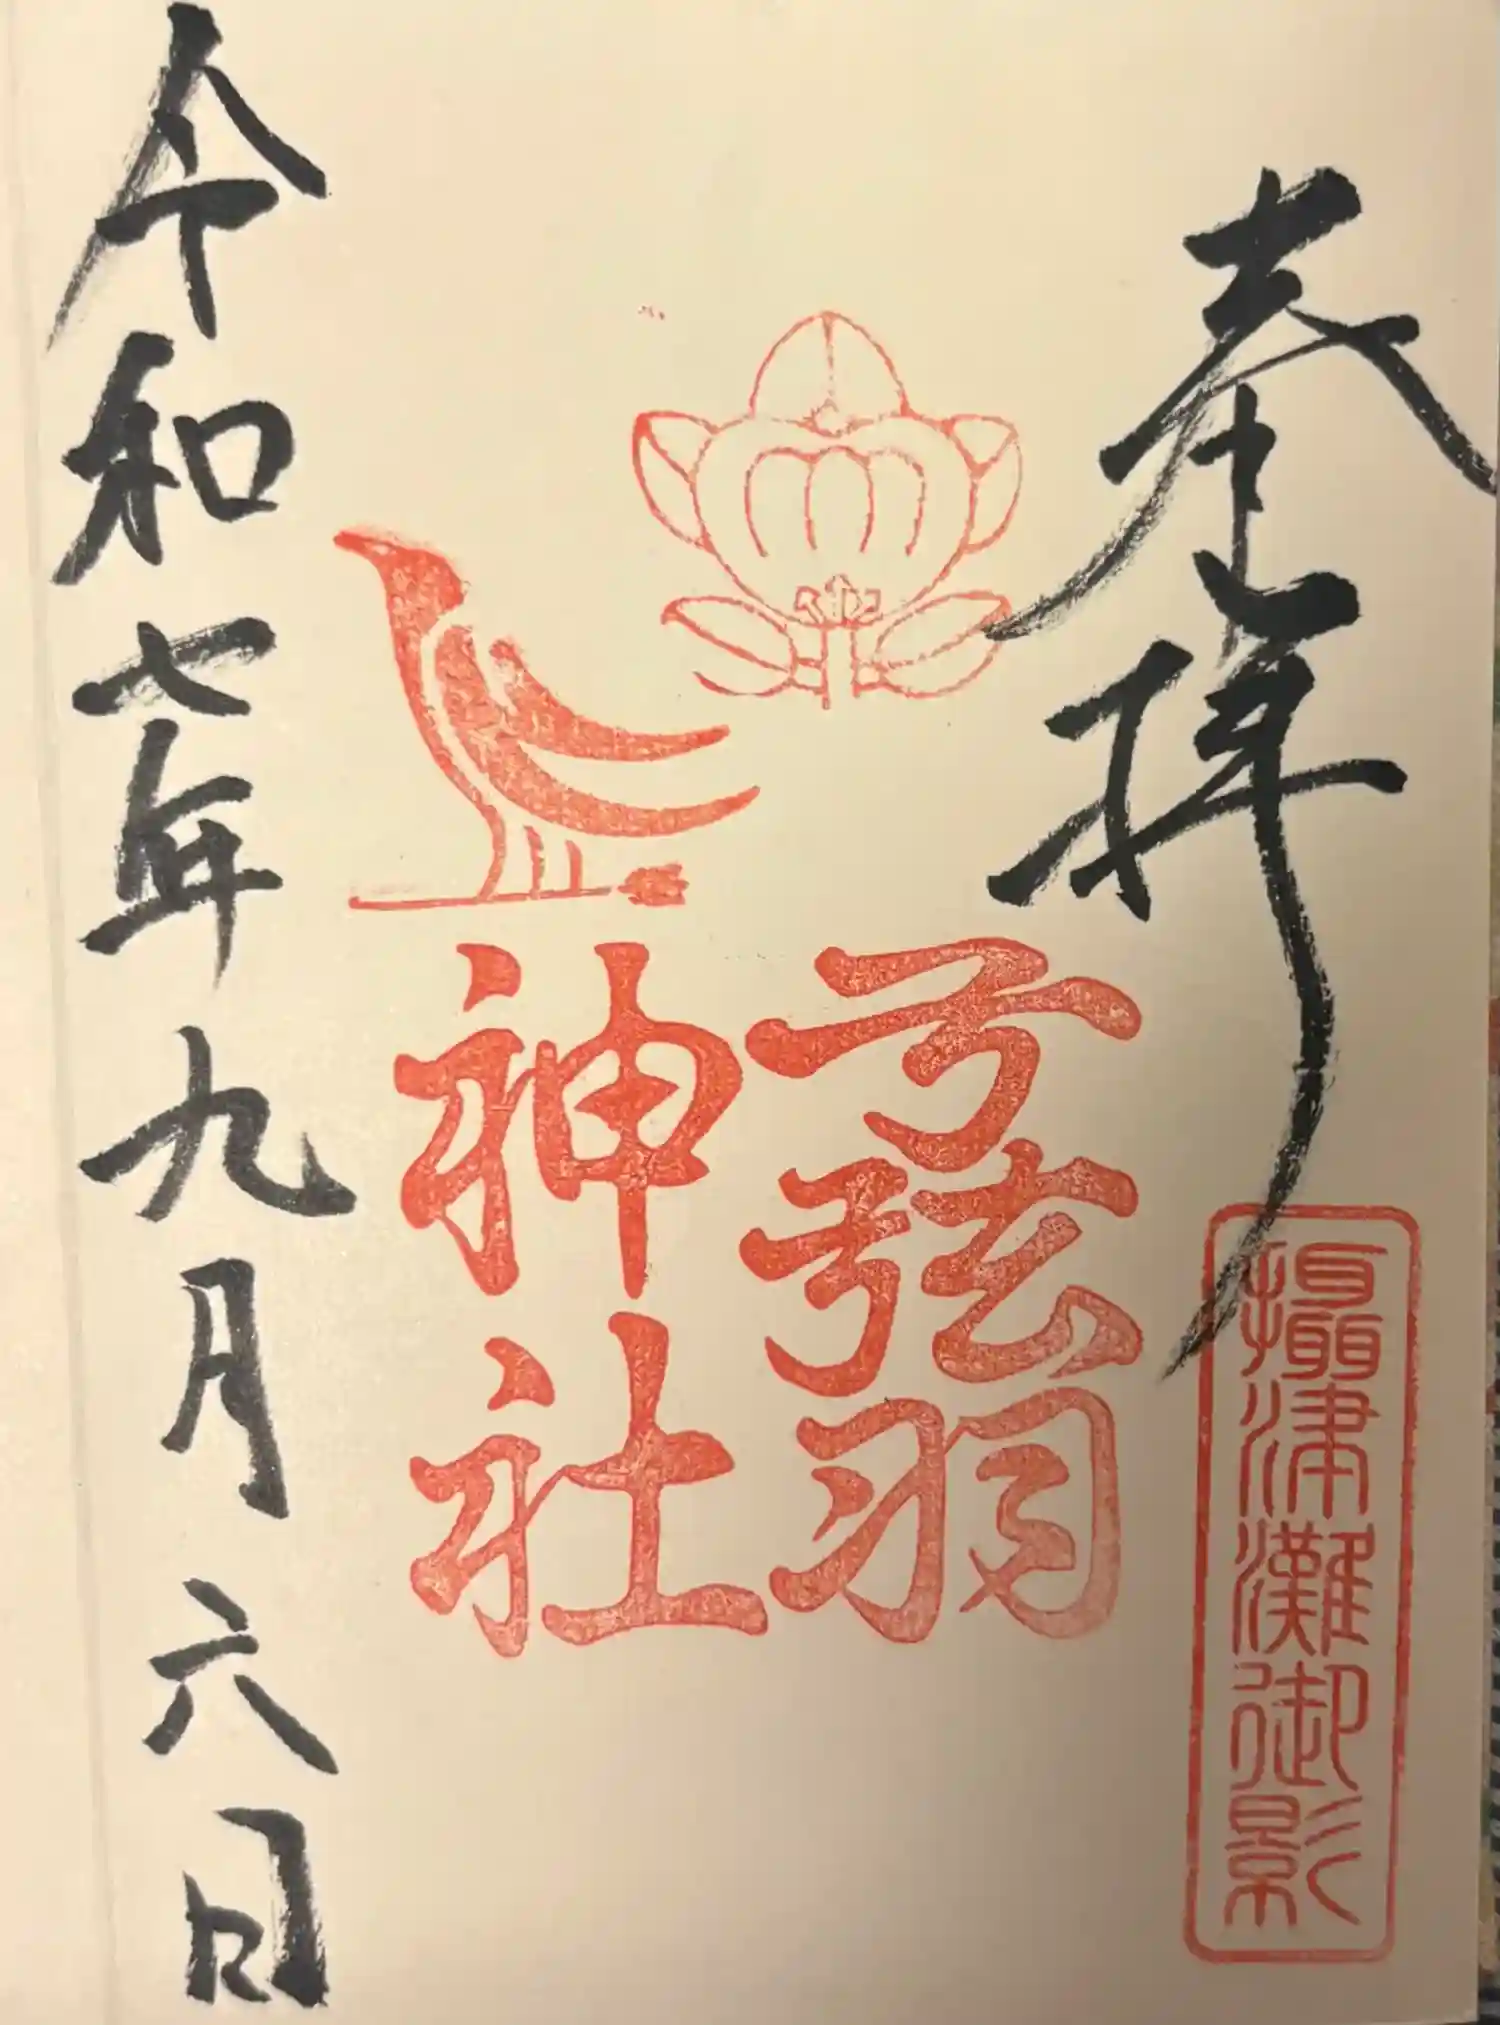 奉拝
攝津灘御影
弓弦羽
神社
令和七年九月六日